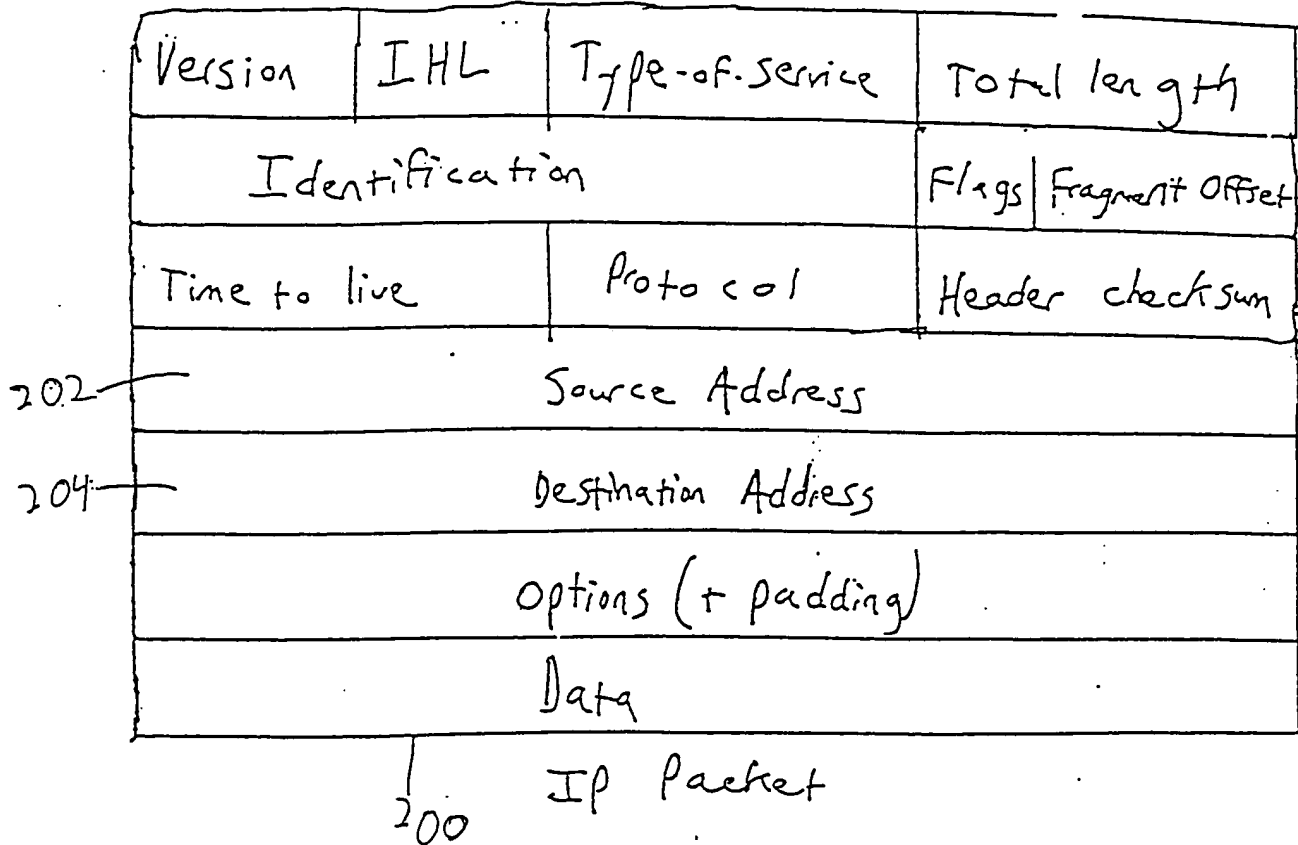 Version IHL Type-of-service Total length
Identification Flags Fragment Offset
Time to live Protocol Header checksum
202 Source Address
204 Destination Address
Options (+ padding)
Data
200 IP Packet